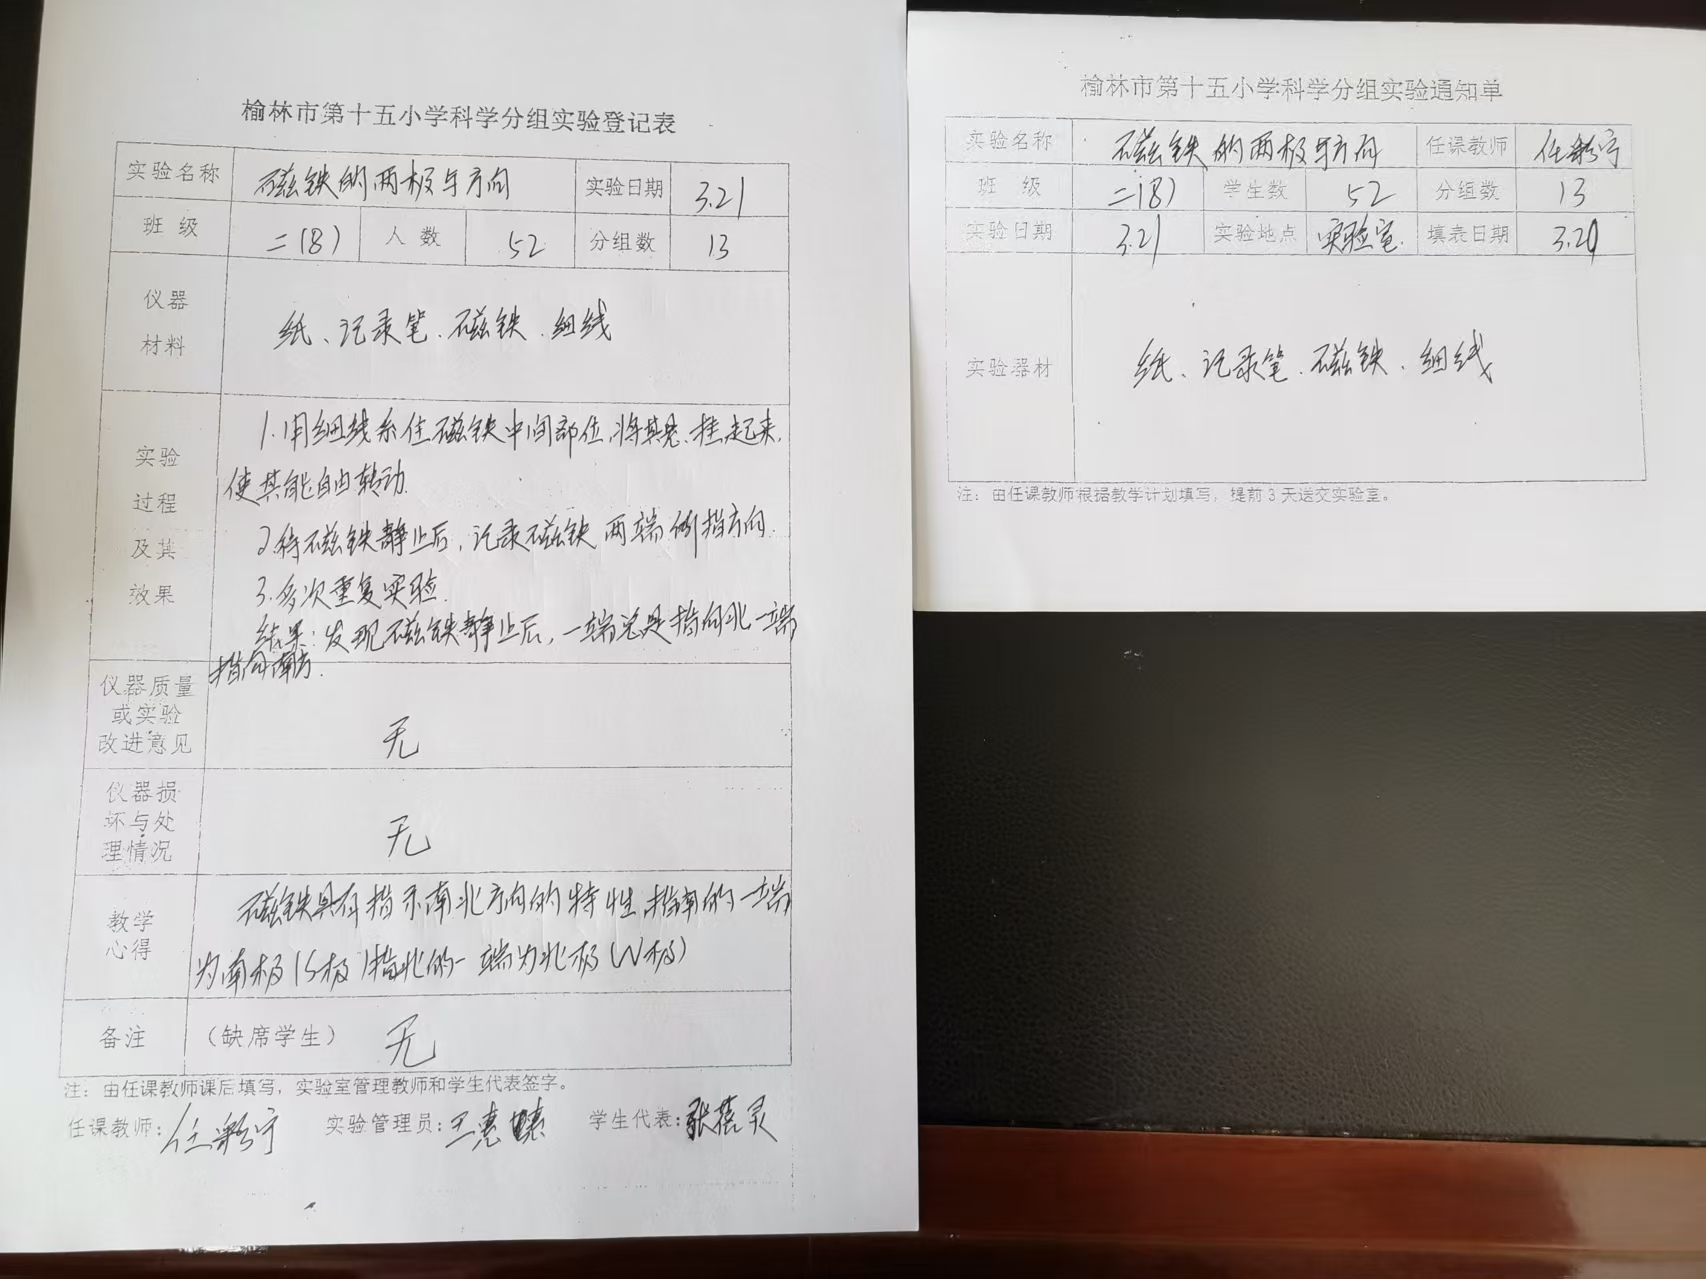 榆林市第十五小学科学分组实验登记表
实验名称 磁铁的两极与方向 实验日期 3.21
班 级 二(8) 人数 52 分组数 13
仪器
材料
纸、记录笔、磁铁、细线
实验
过程
及其
效果
1.用细线系住磁铁中间部位,将其悬挂起来,
使其能自由转动.
2.待磁铁静止后,记录磁铁两端所指方向.
3.多次重复实验.
结果:发现磁铁静止后,一端总是指向北一端
指向南方.
仪器质量
或实验
改进意见
无
仪器损
坏与处
理情况
无
教学
心得
磁铁具有指示南北方向的特性,指南的一端
为南极(S极)指北的一端为北极(N极)
备注 (缺席学生) 无
注:由任课教师课后填写,实验室管理教师和学生代表签字。
任课教师: 任 宁 实验管理员:王 学生代表:张 灵
榆林市第十五小学科学分组实验通知单
实验名称 磁铁的两极与方向 任课教师 任 宁
班 级 二(8) 学生数 52 分组数 13
实验日期 3.21 实验地点 实验室. 填表日期 3.20
实验器材 纸、记录笔、磁铁、细线
注:由任课教师根据教学计划填写,提前3天送交实验室。